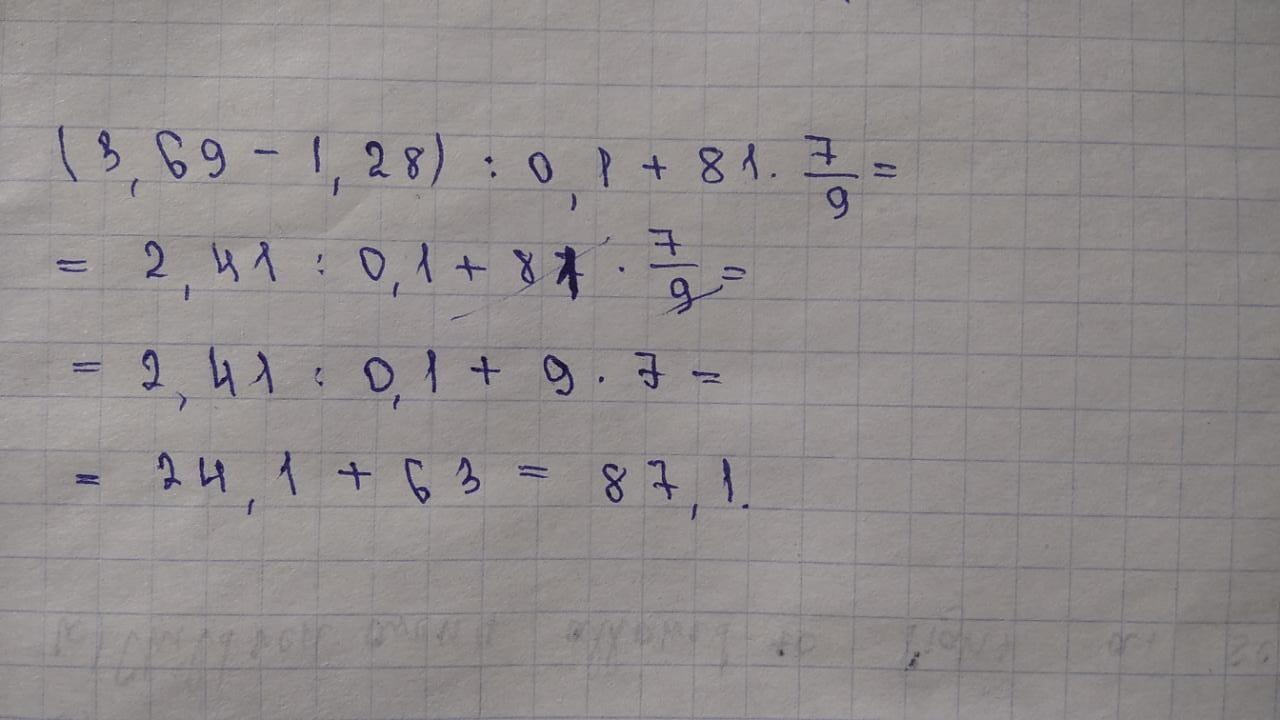 (3,69 - 1,28) : 0,1 + 81 · 7/9 =
= 2,41 : 0,1 + 81 · 7/9 =
= 2,41 : 0,1 + 9 · 7 =
= 24,1 + 63 = 87,1.